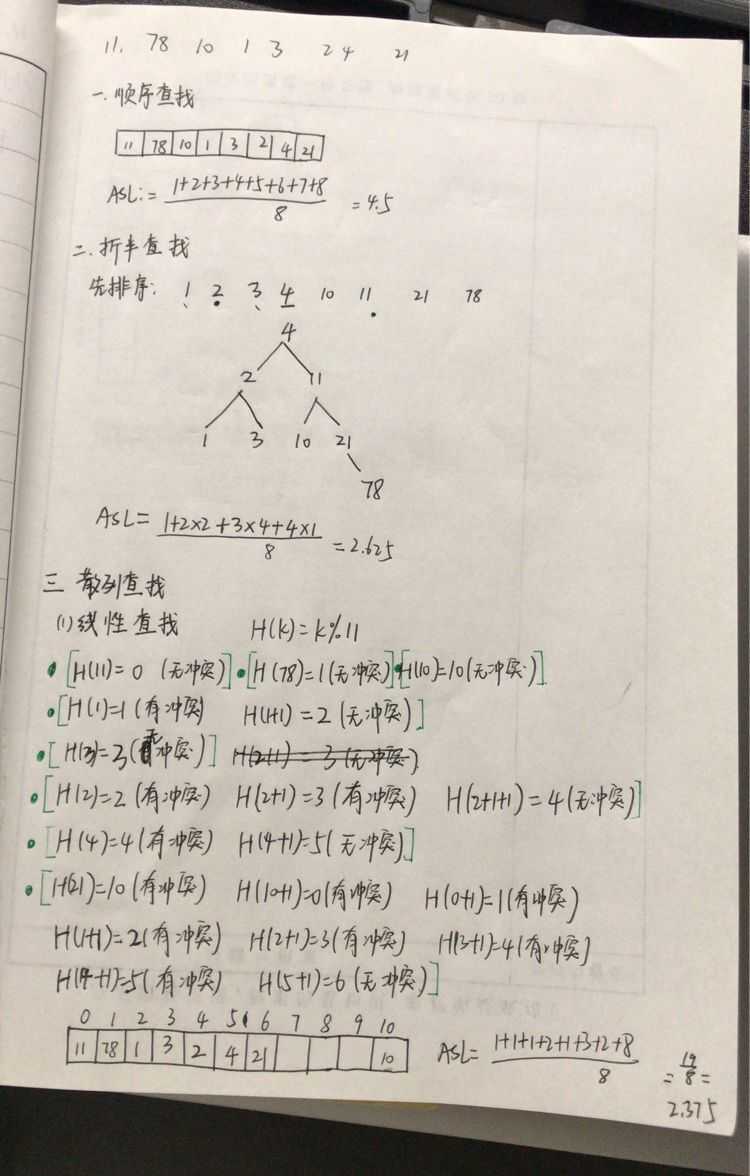 11. 78 10 1 3 2 4 21
一.顺序查找
11 78 10 1 3 2 4 21
ASL:= 1+2+3+4+5+6+7+8 / 8 = 4.5
二.折半查找
先排序: 1 2 3 4 10 11 21 78
4
2 11
1 3 10 21
78
ASL= 1+2×2+3×4+4×1 / 8 = 2.625
三 散列查找
(1)线性查找 H(k)=k%11
[H(11)=0 (无冲突)] [H(78)=1(无冲突)] [H(10)=10(无冲突)]
[H(1)=1(有冲突) H(1+1)=2(无冲突)]
[H(3)=3(无冲突)] H(2+1)=3(无冲突)
[H(2)=2(有冲突) H(2+1)=3(有冲突) H(2+1+1)=4(无冲突)]
[H(4)=4(有冲突) H(4+1)=5(无冲突)]
[H(21)=10(有冲突) H(10+1)=0(有冲突) H(0+1)=1(有冲突)
H(1+1)=2(有冲突) H(2+1)=3(有冲突) H(3+1)=4(有冲突)
H(4+1)=5(有冲突) H(5+1)=6(无冲突)]
0 1 2 3 4 5 6 7 8 9 10
11 78 1 3 2 4 21 10
ASL= 1+1+1+2+1+3+2+8 / 8 = 19/8 =
2.375